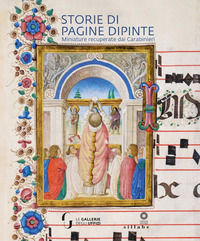 STORIE DI
PAGINE DIPINTE
Miniature recuperate dai Carabinieri
LE GALLERIE
DEGLI UFFIZI
sillabe